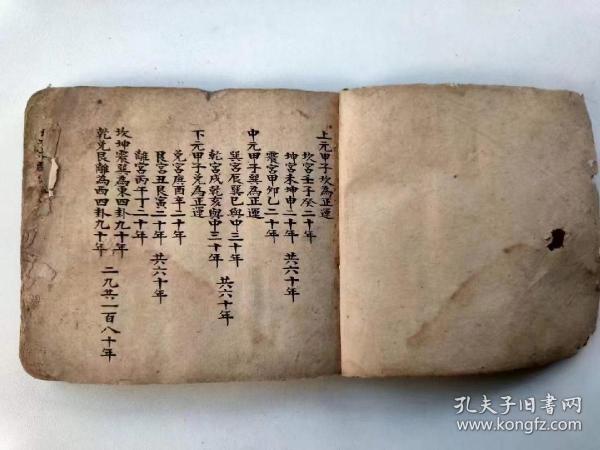 上元甲子坎為正運
坎宮壬子癸二十年
坤宮未坤申二十年 共六十年
震宮甲卯乙二十年
中元甲子巽為正運
巽宮辰巽巳與中三十年
乾宮戌乾亥與中三十年 共六十年
下元甲子兌為正運
兌宮庚酉辛二十年
艮宮丑艮寅二十年 共六十年
離宮丙午丁二十年
坎坤震巽為東四卦九十年
乾兌艮離為西四卦九十年 二九共一百八十年
孔夫子旧书网
www.kongfz.com